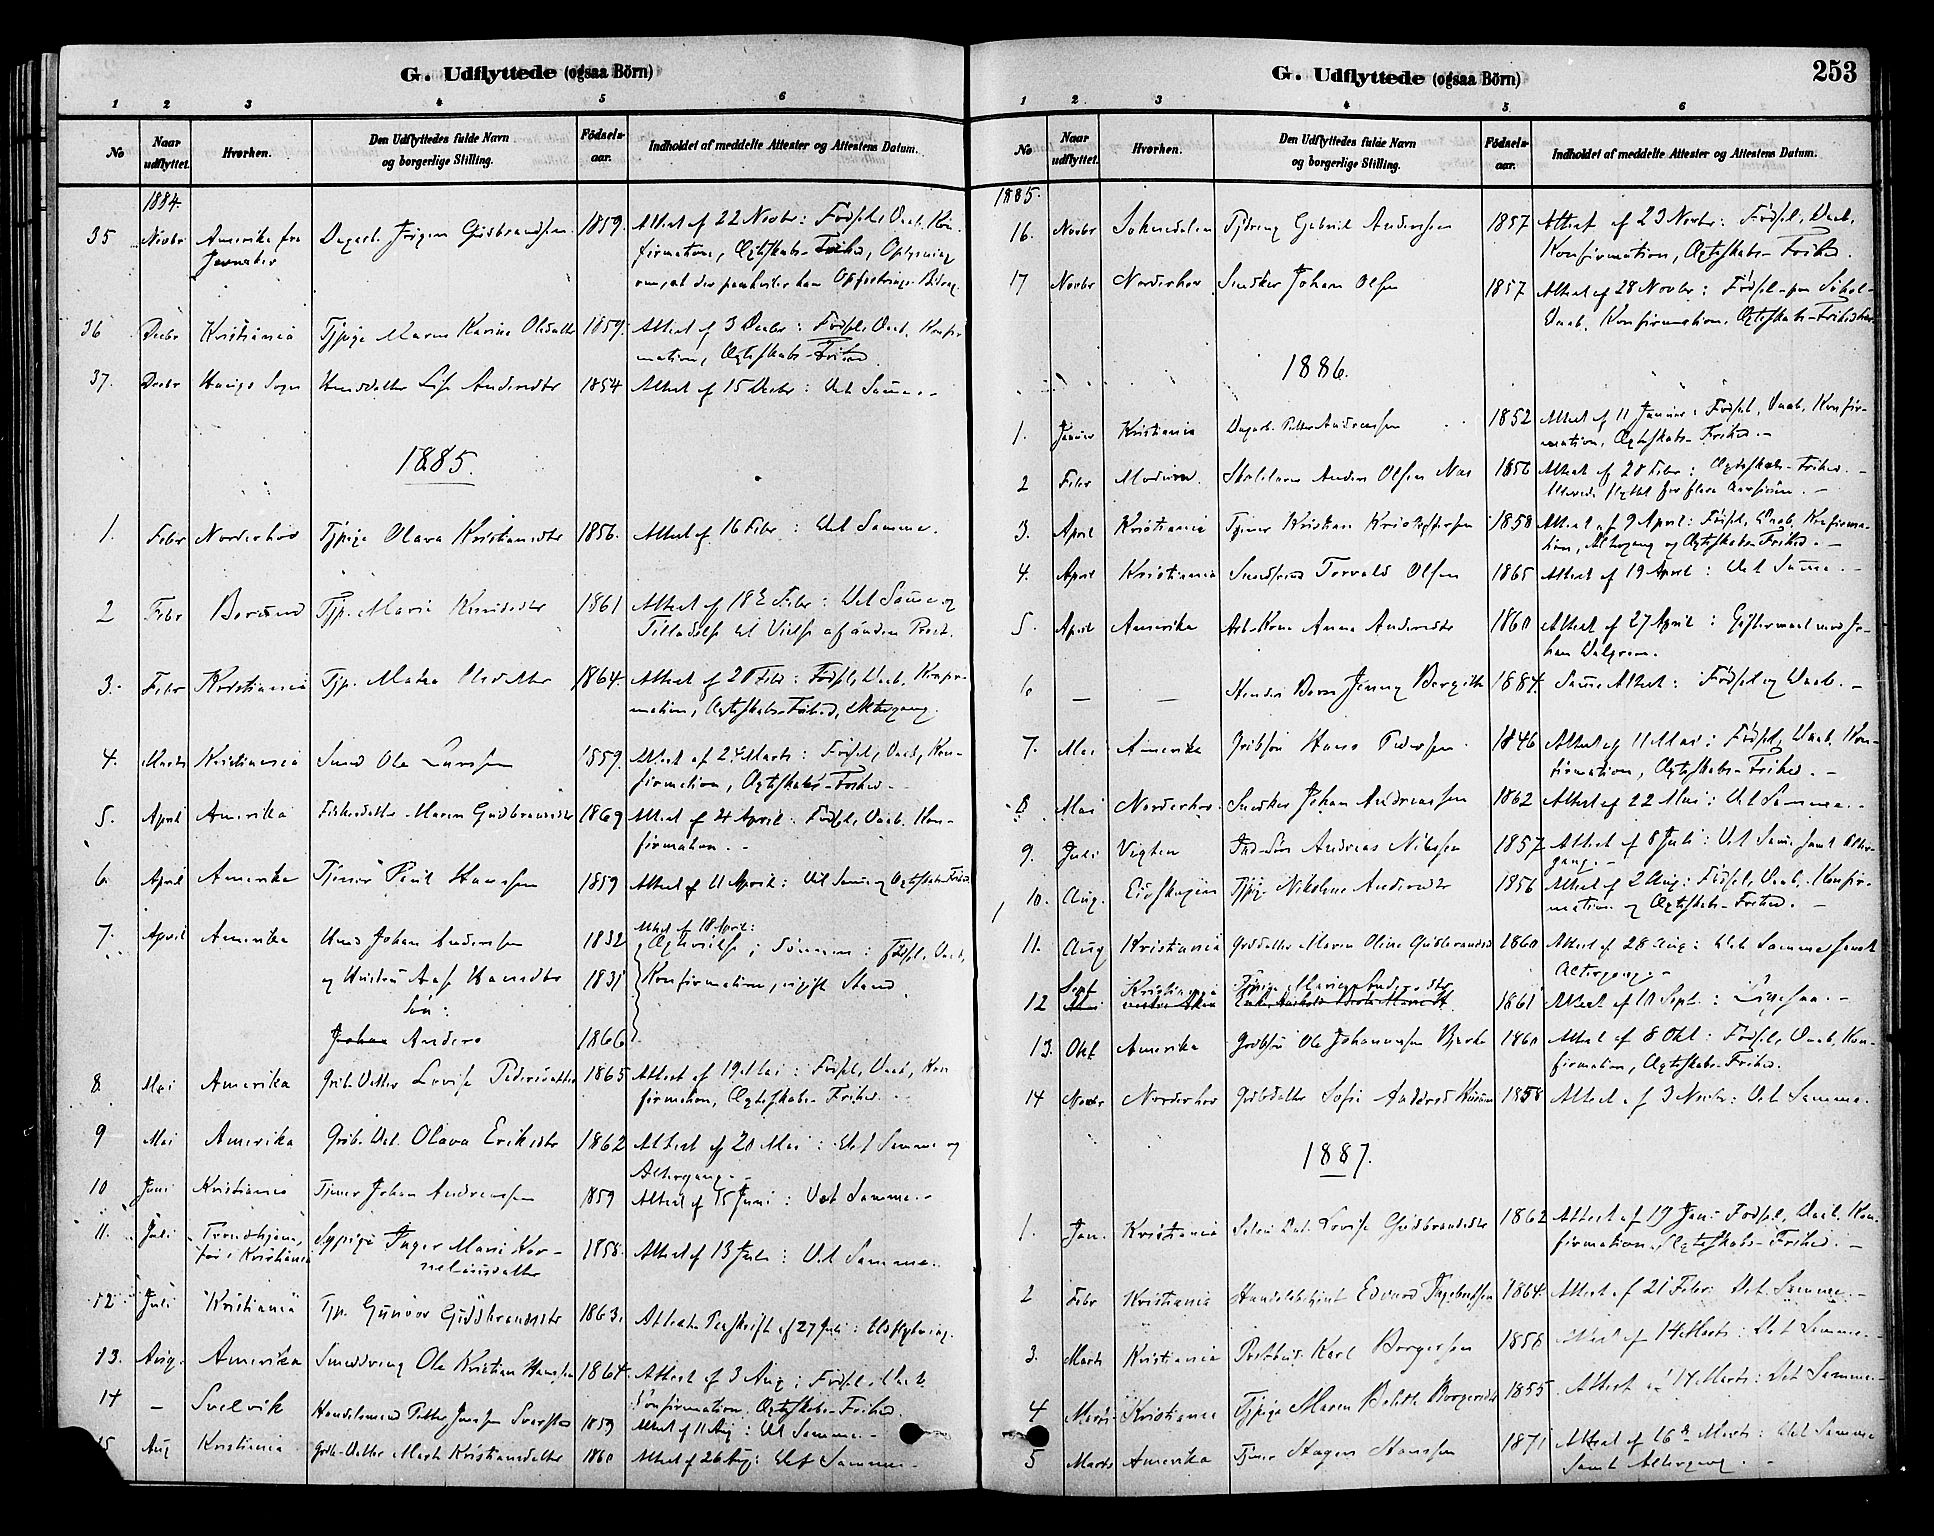 G. Udflyttede (ogsaa Börn)
1 2 3 4 5 6
No
Naar udflyttet.
Hvorhen.
Den Udflyttedes fulde Navn og borgerlige Stilling.
Födsels-aar.
Indholdet af meddelte Attester og Attestens Datum.
1884.
35 Novbr Amerika fra Dagarb. Jörgen Gudbrandsen 1859. Attest af 22 Novbr: Födsel, Daab, Kon-
firmation, Ægteskabs-Frihed, Oplysning
om, at der paahviler ham Opfostrings-Bidrag.
36 Decbr Kristiania Tjpige Maren Karine Olsdatter 1859. Attest af 3 Decbr: Födsel, Daab, Konfir-
mation, Ægteskabs-Frihed
37. Decbr Haugs Sogn Lise Andersdtr 1854 Attest af 15 Decbr: Det Samme.-
1885.
1. Febr Norderhov Tjpige Olava Kristiansdtr 1856. Attest af 16 Febr: Det Samme.
2 Febr Bærum Tjp. Marie 1861 Attest af 18de Febr: Det Samme og
Tilladelse til Vielse af anden Præst.
3. Febr Kristiania Tjp. Olsdatter 1864. Attest af 20 Febr: Födsel, Daab, Konfir-
mation, Ægteskabs-Frihed, Altergang.
4. Marts Kristiania Smed Ole Larssen 1859. Attest af 24 Marts: Födsel, Daab, Kon-
firmation, Ægteskabs-Frihed.-
5. April Amerika Maren Gudbrandsdtr 1869 Attest af 4 April: Födsel, Daab, Kon-
firmation.-
6 April Amerika Tjener Hanssen 1859 Attest af 11 April: Det Samme og Ægteskabs-Frihed
7. April Amerika Johan Anderssen 1832 Attest af 18 April:
og Hustru Hansdtr 1831 Ægtevielse; Sönnen: Födsel, Daab,
Sön: Konfirmation, ugift Stand.
Johan Anders 1866
8 Mai Amerika Grdb. Datter Lovise Pedersdatter 1865 Attest af 19 Mai: Födsel, Daab, Kon
firmation, Ægteskabs-Frihed.
9 Mai Amerika Grdb. Dat. Olava Eriksdtr 1862 Attest af 20 Mai: Det Samme og
Altergang.-
10 Juni Kristiania Tjener Johan Andreassen 1859 Attest af 15 Juni: Det Samme.-
11. Juli Trondhjem, för i Kristiania Sypige Inger Marie Kor-
neliusdatter 1858. Attest af 13 Juli: Det Samme.
12 Juli Kristiania Tjp. Gunvor Gudbrandsdtr 1863. Attest af 27 Juli: Udflytning.
13. Aug. Amerika Smeddreng Ole Kristian Hanssen 1864. Attest af 3 Aug: Födsel, Daab
Konfirmation, Ægteskabs-Frihed.
14 - Svelvik Handelsmand Petter Jensen 1859 Attest af 11 Aug: Det Samme.-
15 Aug Kristiania Grdb-Datter Marte Kristiansdatter 1860 Attest af 26 Aug: Det Samme.-
253
G. Udflyttede (ogsaa Börn)
1 2 3 4 5 6
No
Naar udflyttet.
Hvorhen.
Den Udflyttedes fulde Navn og borgerlige Stilling.
Födsels-aar.
Indholdet af meddelte Attester og Attestens Datum.
1885.
16. Novbr Soknedalen Tjdreng Gabriel Anderssen 1857 Attest af 23 Novbr: Födsel, Daab,
Konfirmation, Ægteskabs-Frihed.
17 Novbr Norderhov Snedker Johan Olsen 1857 Attest af 28 Novbr: Födsel
Daab, Konfirmation, Ægteskabs-Frihed
1886.
1. Januar Kristiania Dagarb. Petter Andreassen 1852 Attest af 11 Januar: Födsel, Daab, Konfir-
mation, Ægteskabs-Frihed.-
2 Febr Modum Skolelærer Anders Olsen 1856 Attest af 28 Febr: Ægteskabs-Frihed.-
Allerede flyttet for flere Aar siden.-
3. April Kristiania Tjener Kristian Kristoffersen 1858 Attest af 9 April: Födsel, Daab, Konfirma-
tion, Altergang og Ægteskabs-Frihed.-
4. April Kristiania Torvald Olsen 1865 Attest af 19 April: Det Samme.-
5. April Amerika Arb-Kone Anna Andersdtr 1860 Attest af 27 April: Giftermaal med Jo-
han
6 - - Hendes Barn Jenny Bergith 1884. Samme Attest: Födsel og Daab.-
7. Mai Amerika Hans Pedersen 1846 Attest af 11 Mai: Födsel, Daab, Kon-
firmation, Ægteskabs-Frihed.-
8 Mai Norderhov Snedker Johan Andreassen 1862 Attest af 22 Mai: Det Samme.-
9. Juli Vigten Andreas Nilssen 1857 Attest af 8 Juli: Det Samme samt Alter-
gang.-
10. Aug. Eidskogen Tjpige Nikoline Andersdtr 1856 Attest af 2 Aug: Födsel, Daab, Konfir-
mation og Ægteskabs-Frihed.-
11. Aug Kristiania Grdbdatter Maren Oline Gudbrandsd 1860 Attest af 28 Aug: Det Samme samt
Altergang.-
12 Sept Kristiania Tjpige Marie Andersdtr 1861 Attest af 10 Sept.: Ligesaa.-
13. Okt Amerika Grdbsön Ole Johannessen Bjerke 1860 Attest af 8 Okt: Födsel, Daab, Kon-
firmation, Ægteskabs-Frihed.
14 Novbr Norderhov Grdbdatter Sofie 1858 Attest af 3 Novbr: Det Samme.
1887.
1. Jan. Kristiania Lovise Gudbrandsdtr 1862 Attest af 19 Jan: Födsel, Daab, Kon-
firmation, Ægteskabs-Frihed.-
2 Febr Kristiania Handelsbetjent Edvard Ingebretsen 1864. Attest af 21 Febr: Det Samme.-
3. Marts Kristiania Karl Borgersen 1858 Attest af 14 Marts: Det Samme.-
4 Marts Kristiania Tjpige Maren Borgersdtr 1855 Attest af 14 Marts: Det Samme.-
5 Marts Amerika Tjener Hagen Hanssen 1871 Attest af 16de Marts: Det Samme
samt Altergang.-